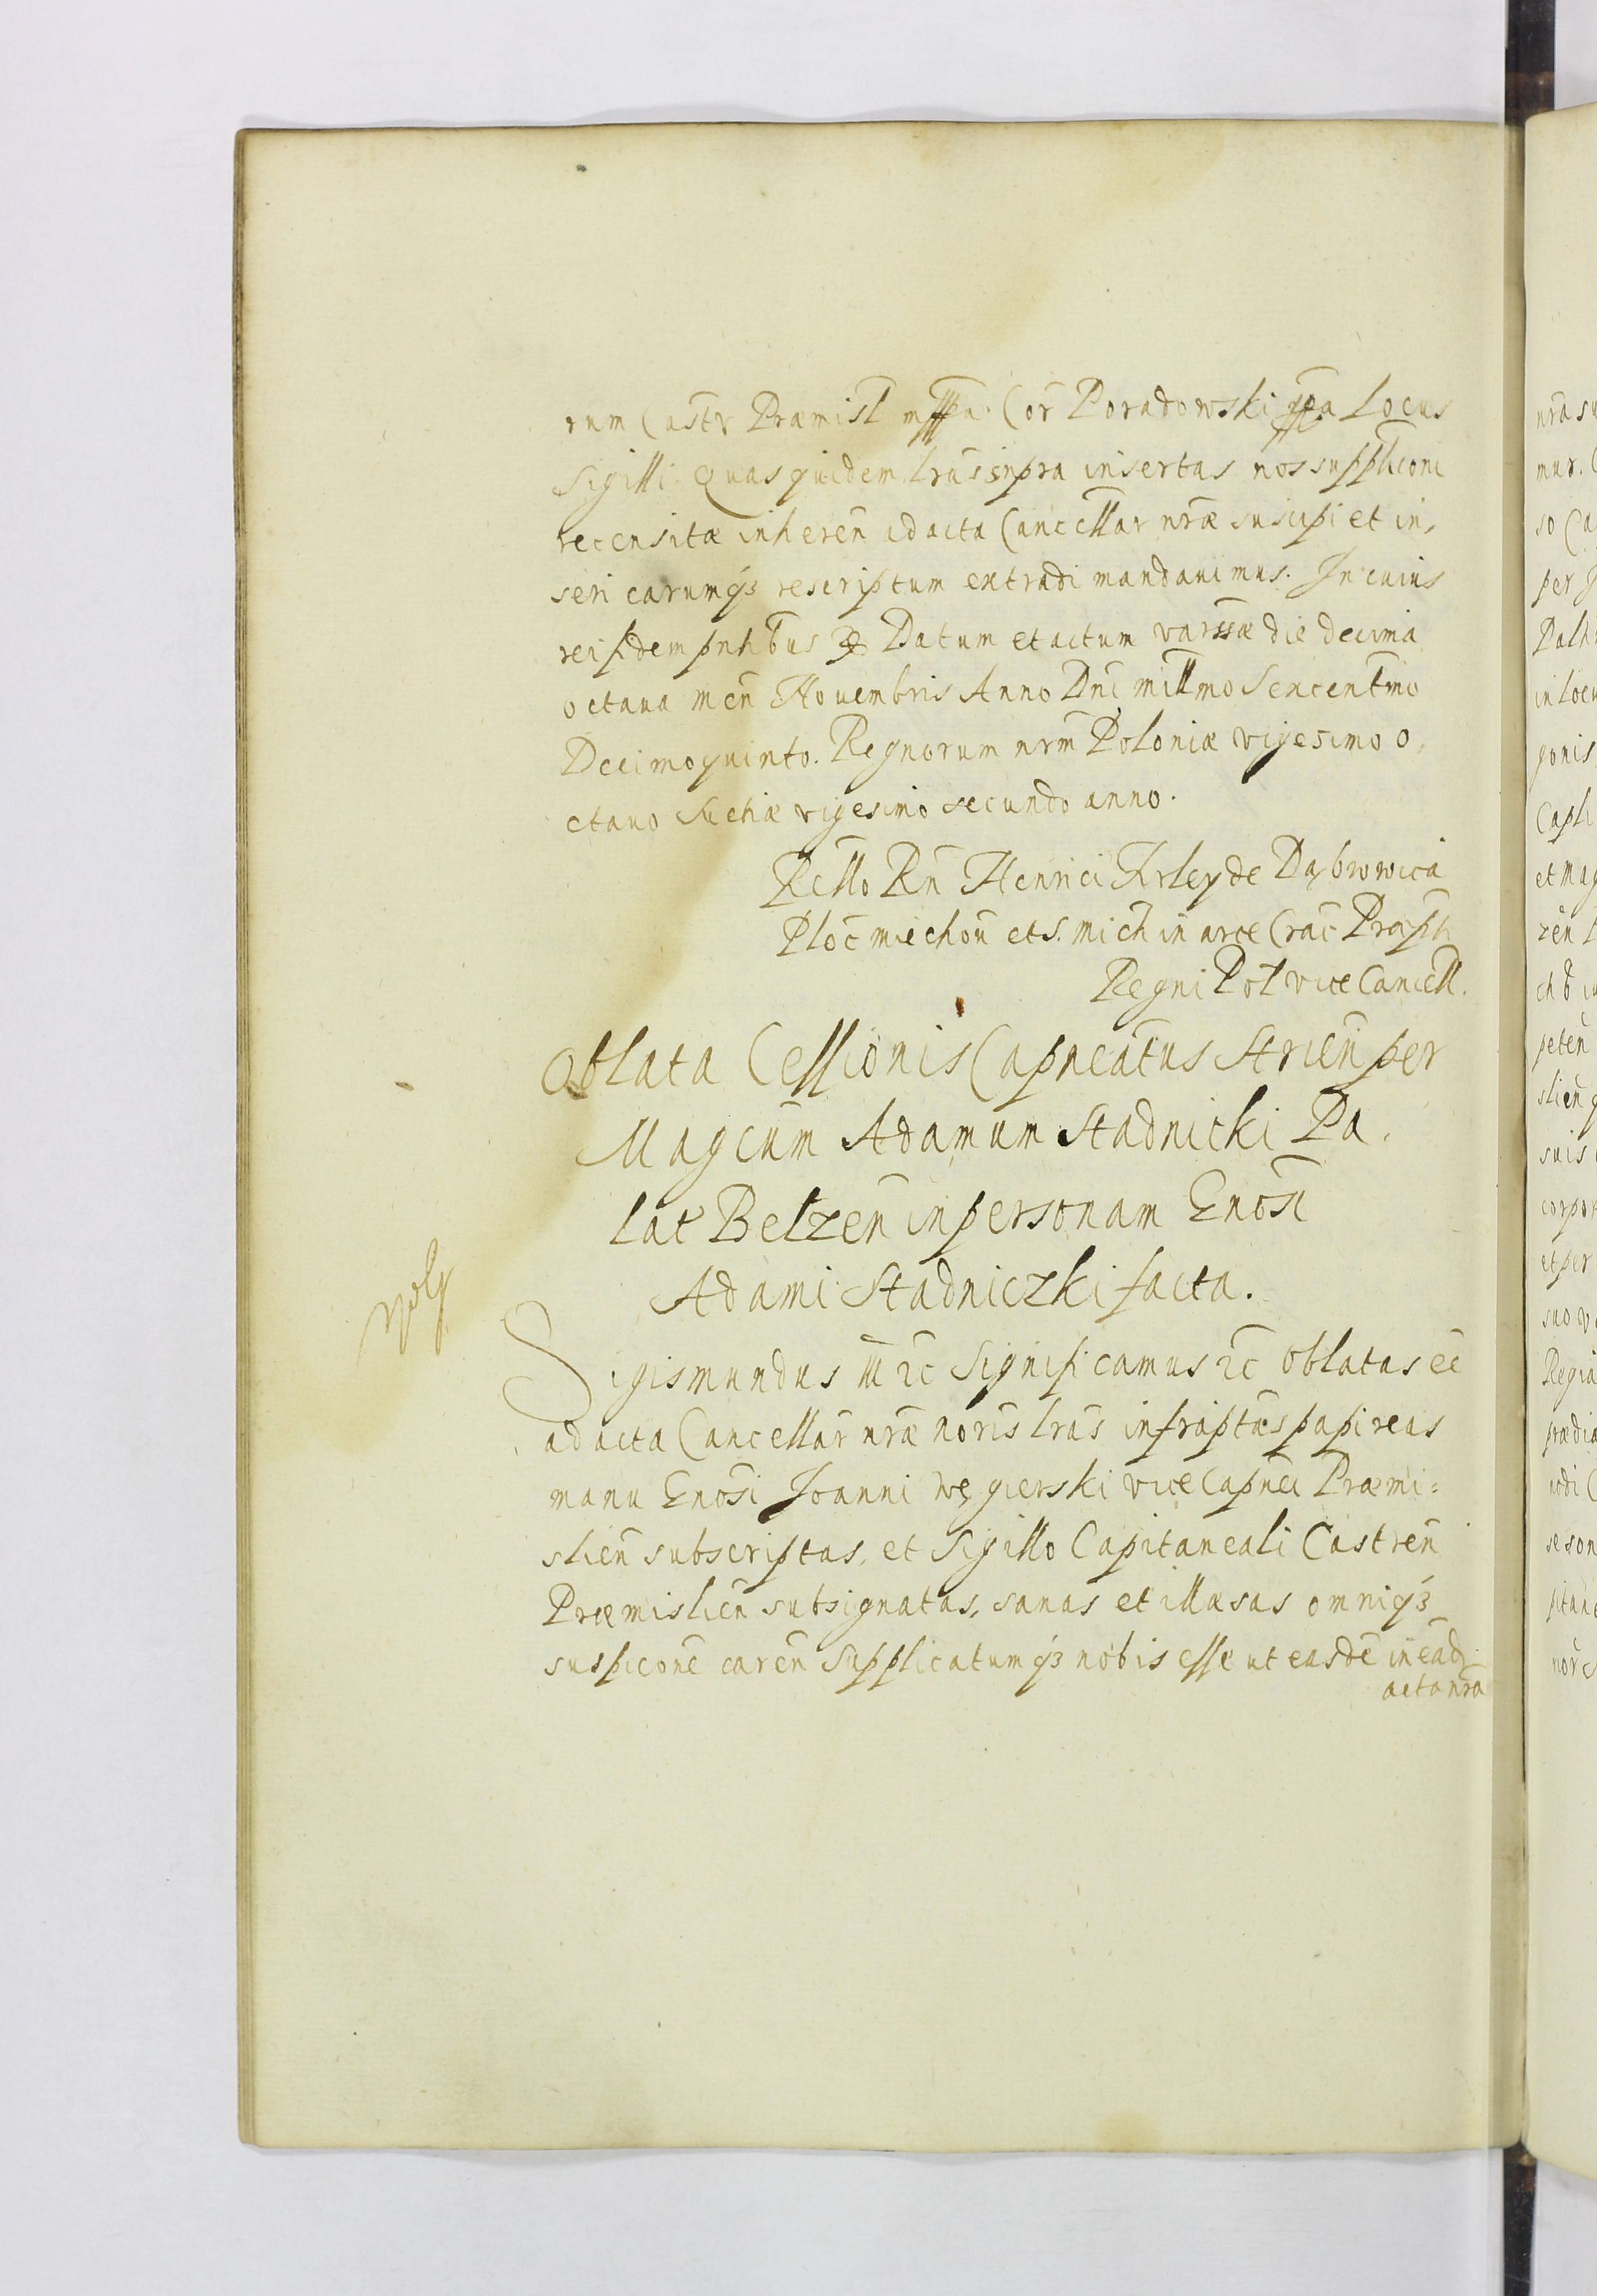 rum Castr Præmisl mppa. Cor Poradowski mppa Locus
Sigilli. Quas quidem lras supra insertas nos suppliconi
recensitæ inheren ad acta Cancellar nræ suscipi et in,
seri earumq3 rescriptum extradi mandauimus. In cuius
rei fidem pntibus Datum et actum varssæ die decima
octaua men Nouembris Anno Dni millmo Sexcentmo
Decimoquinto. Regnorum nrm Poloniæ vigesimo o,
ctauo Sueciæ vigesimo secundo anno.
Rello Rn Henrici Firley de Dąbrowica
Ploc miechou et S. Mich in arce Crac Præpti
Regni Pol vice Cancell.
Oblata Cessionis Capneatus Strien per
Magcum Adamum Stadnicki Pa,
lat Belzen in personam Gnosi
Adami Stadniczki facta.
wolg
Sigismundus III etc Significamus etc Oblatas ee
ad acta Cancellar nræ noris lras infraptas papireas
manu Gnosi Joanni Węgierski vice Capnei Præmi=
slien subscriptas, et Sigillo Capitaneali Castren
Præmislien subsignatas, sanas et illæsas omniq3
suspicone caren Supplicatumq3 nobis esse ut easde in ead
acta nra